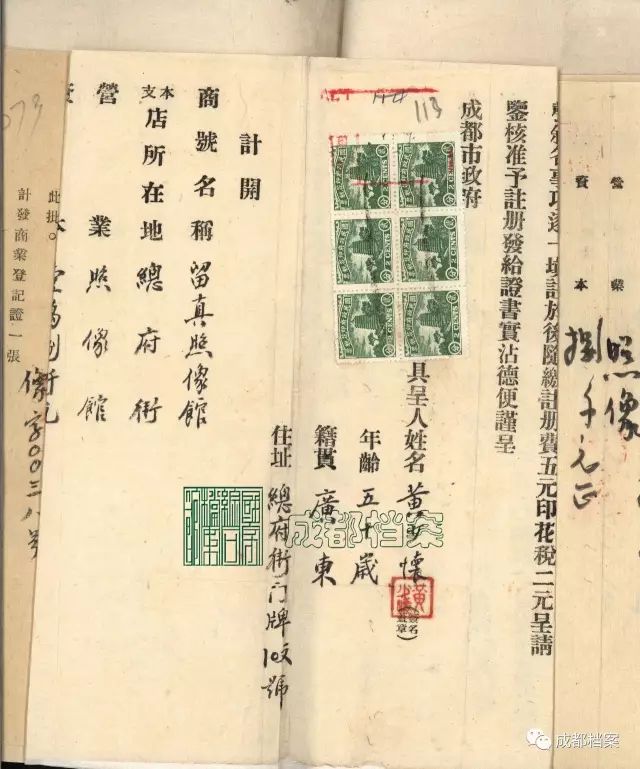 營業 照像
資本 捌千元正
項逐一填註於後隨繳註册費五元印花稅二元呈請
鑒核准予註册發給證書實沾德便謹呈
成都市政府
113
具呈人姓名 黃少懷 (簽名蓋章)
年齡 五十歲
籍貫 廣東
住址 總府街門牌 號
計開
商號名稱 留真照像館
本支店所在地 總府街
營業 照像館
此批。
計發商業登記證一張
像字00三八號
2 CENTS
2 CENTS
2 CENTS
2 CENTS
2 CENTS
2 CENTS
成都档案
成都档案